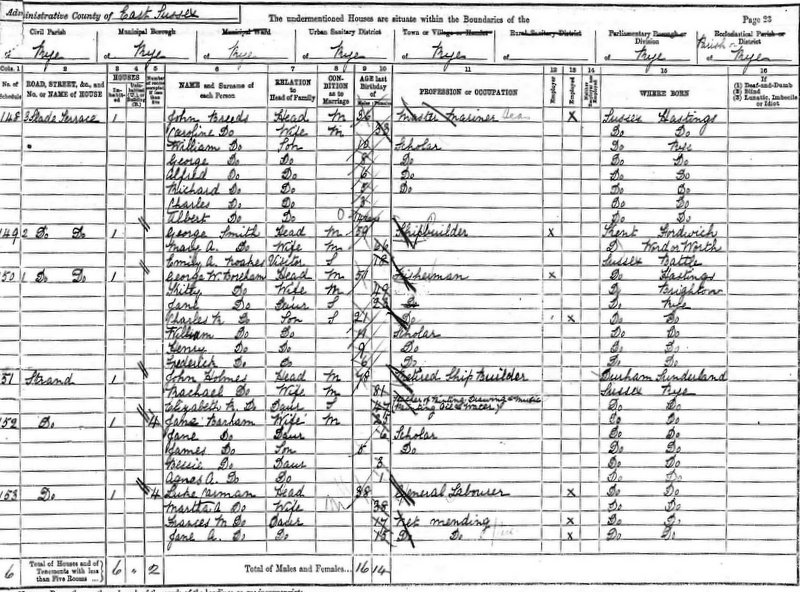 Administrative County of East Sussex The undermentioned Houses are situate within the Boundaries of the Page 23
Civil Parish Municipal Borough Municipal Ward Urban Sanitary District Town or Village or Hamlet Rural Sanitary District Parliamentary Borough or Division Ecclesiastical Parish or District
of Rye of Rye of Rye of Rye of Rye Parish of Rye
Cols. 1 2 3 4 5 6 7 8 9 10 11 12 13 14 15 16
No. of Schedule ROAD, STREET, &c., and No. or NAME of HOUSE HOUSES Inhabited NAME and Surname of each Person RELATION to Head of Family CONDITION as to Marriage AGE last Birthday of Males Females PROFESSION or OCCUPATION Employer Employed WHERE BORN If (1) Deaf-and-Dumb (2) Blind (3) Lunatic, Imbecile or Idiot
148 3 Slade Terrace 1 John Breeds Head M 36 Master Mariner Sea X Sussex Hastings
Caroline Do Wife M 33 Do Do
William Do Son 10 Scholar Do Rye
George Do Do 8 Do Do Do
Alfred Do Do 6 Do Do Do
Richard Do Do 5 Do Do Do
Charles Do Do 3 Do Do
Albert Do Do Do Do
149 2 Do Do 1 George Smith Head M 59 Shipbuilder X Kent Fordwich
Mary A. Do Wife M 56 Do
Emily A Noakes Visitor S 18 Sussex Battle
150 1 Do Do 1 George W. Boreham Head M 51 Fisherman X Do Hastings
Kitty Do Wife M 49 Do Brighton
Jane Do Daur S 23 Do Rye
Charles Do Son S 21 Do X Do Do
William Do Do 11 Scholar Do Do
Henry Do Do 9 Do Do Do
Frederick Do Do 6 Do Do Do
151 Strand 1 John Holmes Head M Retired Ship Builder Durham Sunderland
Rachael Do Wife M 81 Sussex Rye
Elizabeth Do Daur S 47 Do Do
152 Do 1 4 Jane Barham Wife M Do Do
Jane Do Daur 6 Scholar Do Do
James Do Son 5 Do Do Do
Bessie Do Daur 3 Do Do
Agnes A. Do Do 1 Do Do
153 Do 1 4 Luke Head M 38 General Labourer X Do Do
Martha A Do Wife 38 Do Do
Frances M Do Daur 17 Net mending X Do Do
Jane A. Do Do 15 Do Do X Do Do
6 Total of Houses and of Tenements with less than Five Rooms 6 2 Total of Males and Females... 16 14